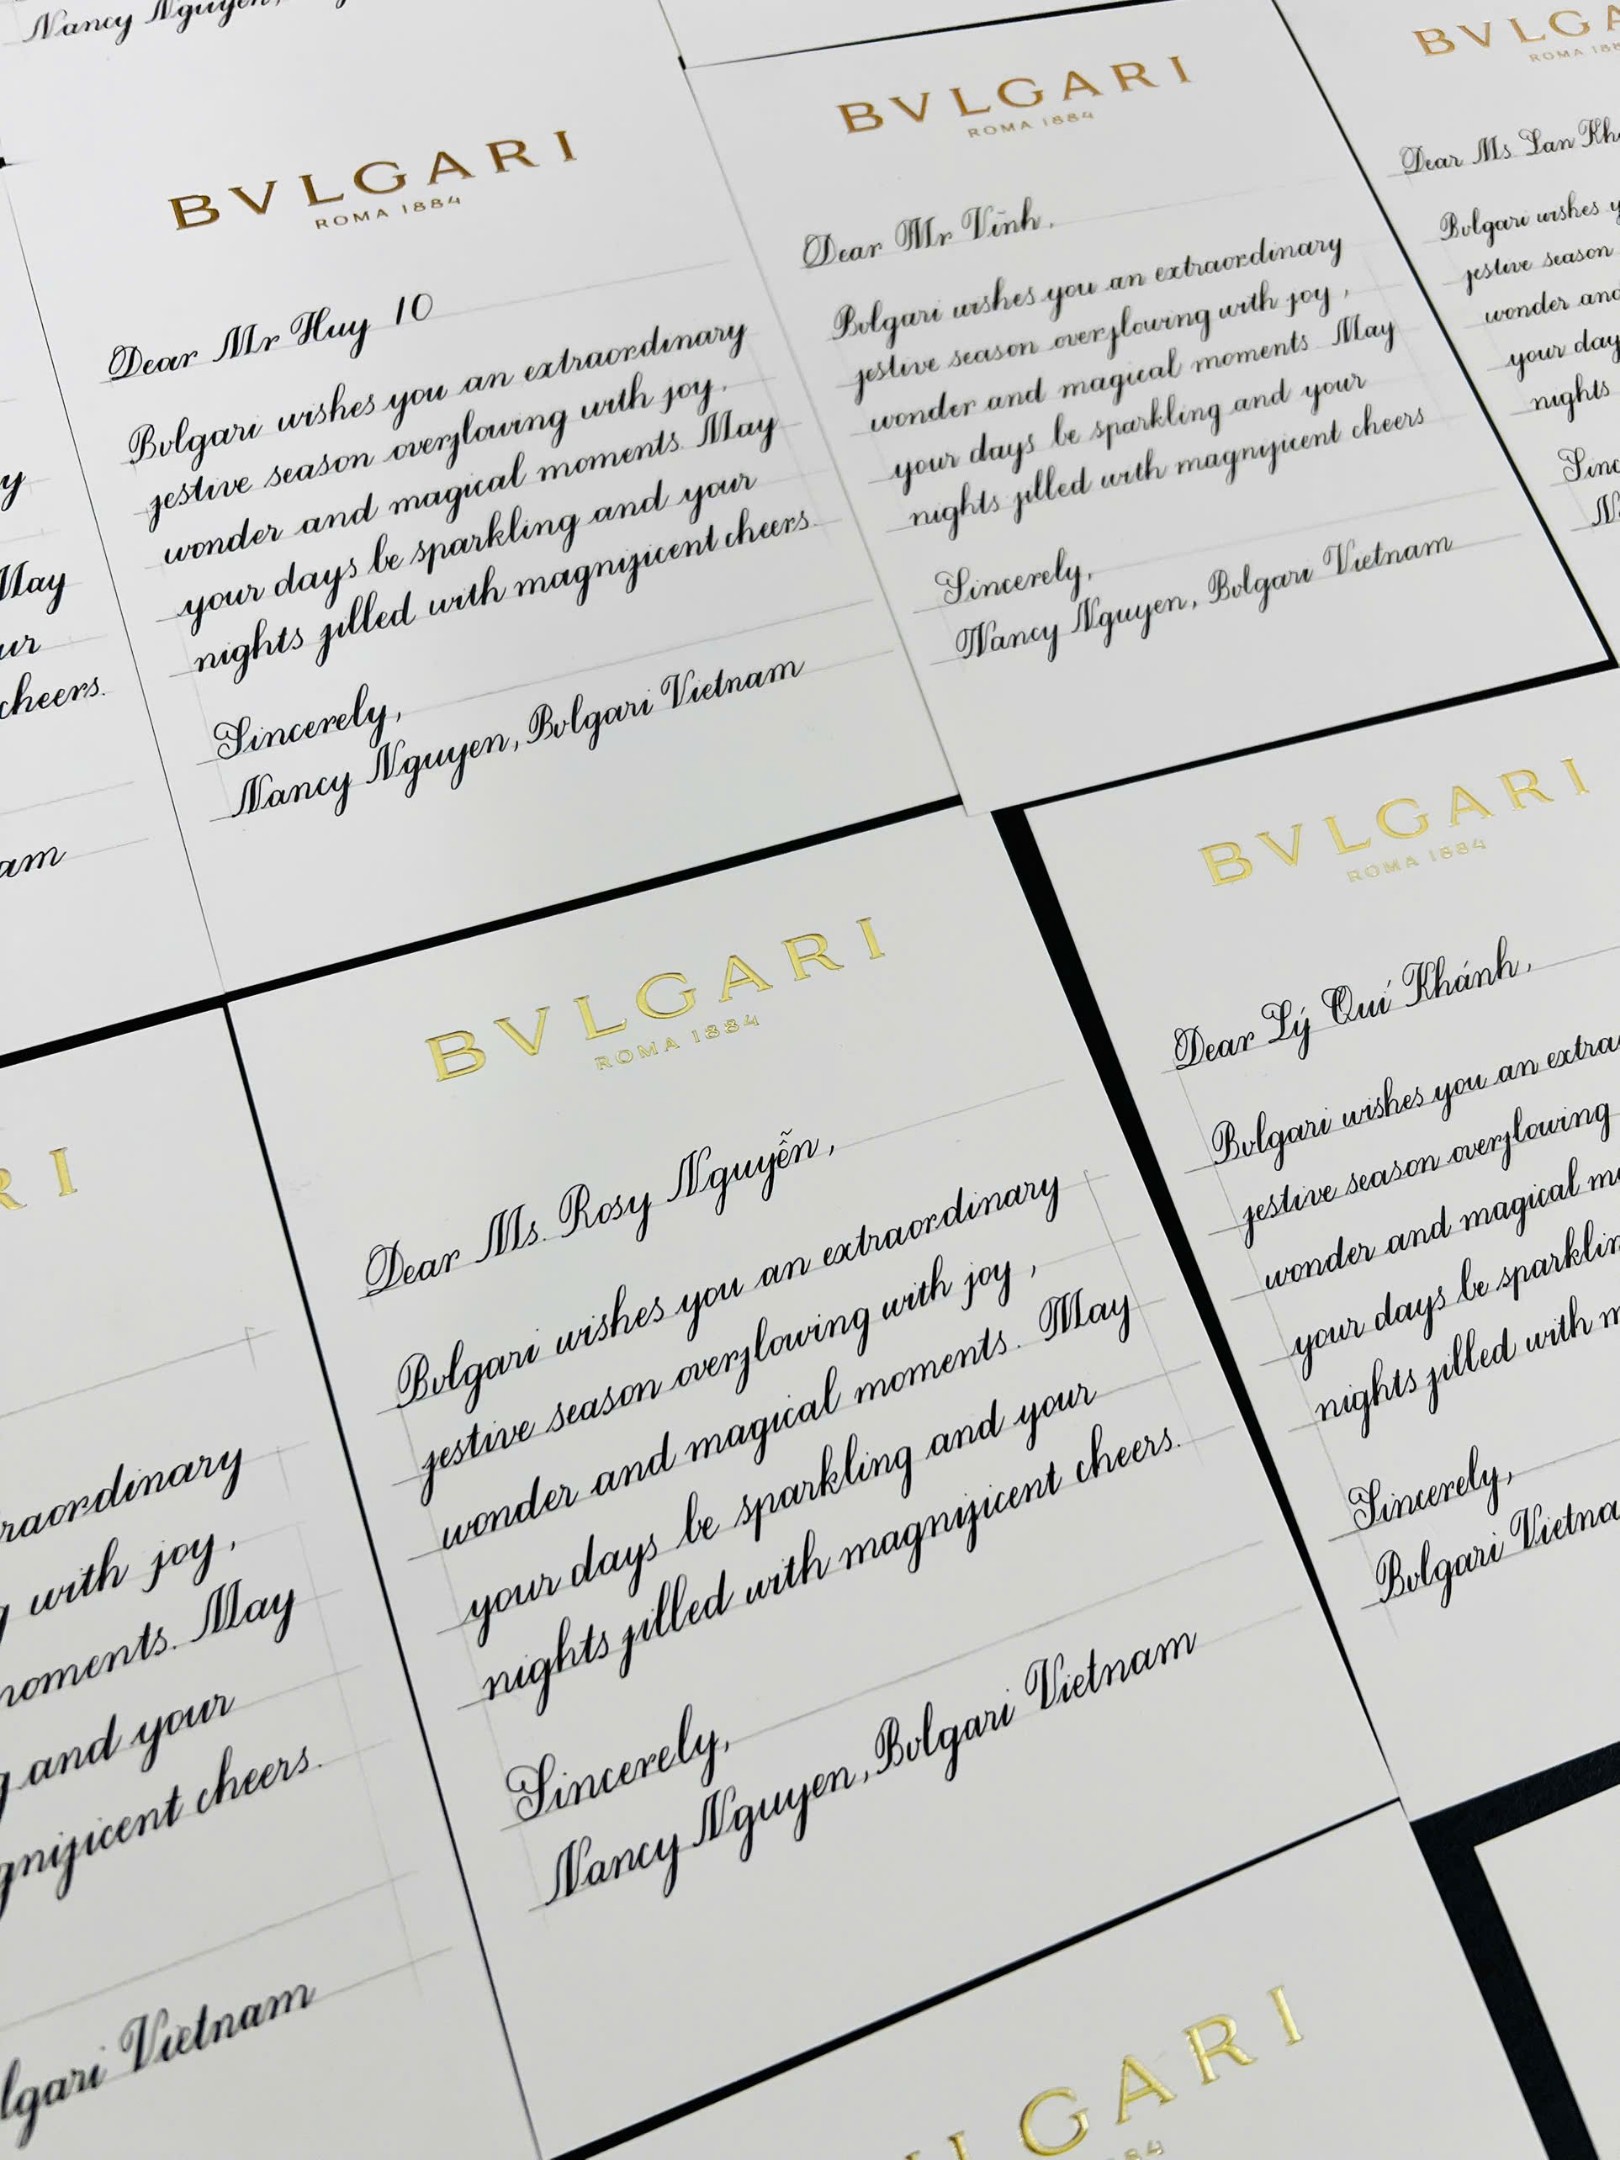 Nancy Nguyen,
BVLGARI
ROMA 1884
Dear Mr Huy 10
Bvlgari wishes you an extraordinary
festive season overflowing with joy,
wonder and magical moments. May
your days be sparkling and your
nights filled with magnificent cheers.
Sincerely,
Nancy Nguyen, Bvlgari Vietnam
BVLGARI
ROMA 1884
Dear Mr Vĩnh,
Bvlgari wishes you an extraordinary
festive season overflowing with joy,
wonder and magical moments. May
your days be sparkling and your
nights filled with magnificent cheers
Sincerely,
Nancy Nguyen, Bvlgari Vietnam
ROMA
Dear Ms Lan
Bvlgari wishes
festive season
wonder and
your day
nights
May
cheers.
BVLGARI
ROMA 1884
Dear Ms. Rosy Nguyễn,
Bvlgari wishes you an extraordinary
festive season overflowing with joy,
wonder and magical moments. May
your days be sparkling and your
nights filled with magnificent cheers.
Sincerely,
Nancy Nguyen, Bvlgari Vietnam
BVLGARI
ROMA 1884
Dear Lý Quí Khánh,
Bvlgari wishes you an extra
festive season overflowing
wonder and magical mo
your days be sparklin
nights filled with m
Sincerely,
Bvlgari Vietna
RI
raordinary
g with joy,
moments. May
g and your
gnificent cheers.
lgari Vietnam
GARI